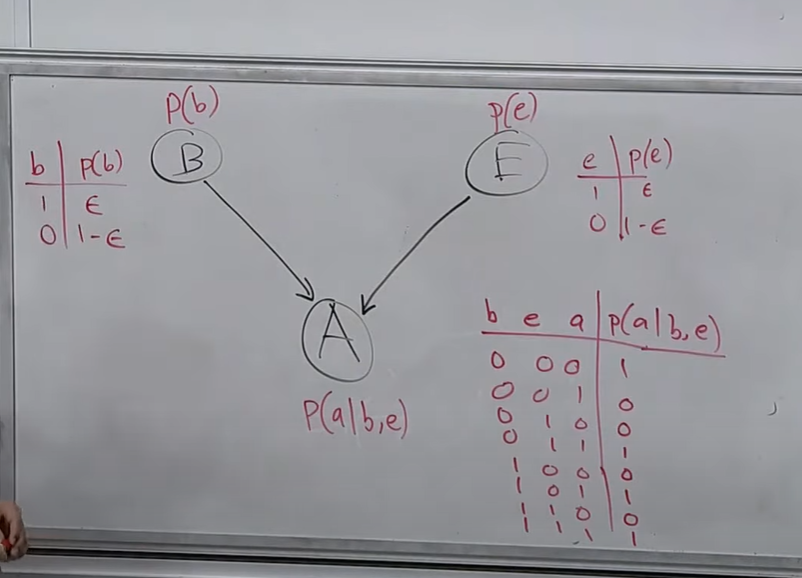 p(b)
p(e)
B
E
b p(b)
1 ϵ
0 1-ϵ
e p(e)
1 ϵ
0 1-ϵ
A
P(a|b,e)
b e a p(a|b,e)
0 0 0 1
0 0 1 0
0 1 0 0
0 1 1 1
1 0 0 0
1 0 1 1
1 1 0 0
1 1 1 1